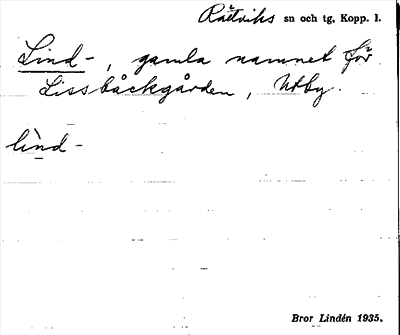 Rättviks sn och tg, Kopp. l.
Lind-, gamla namnet för
Lissbäckgården, Utby.
lìnd-
Bror Lindén 1935.